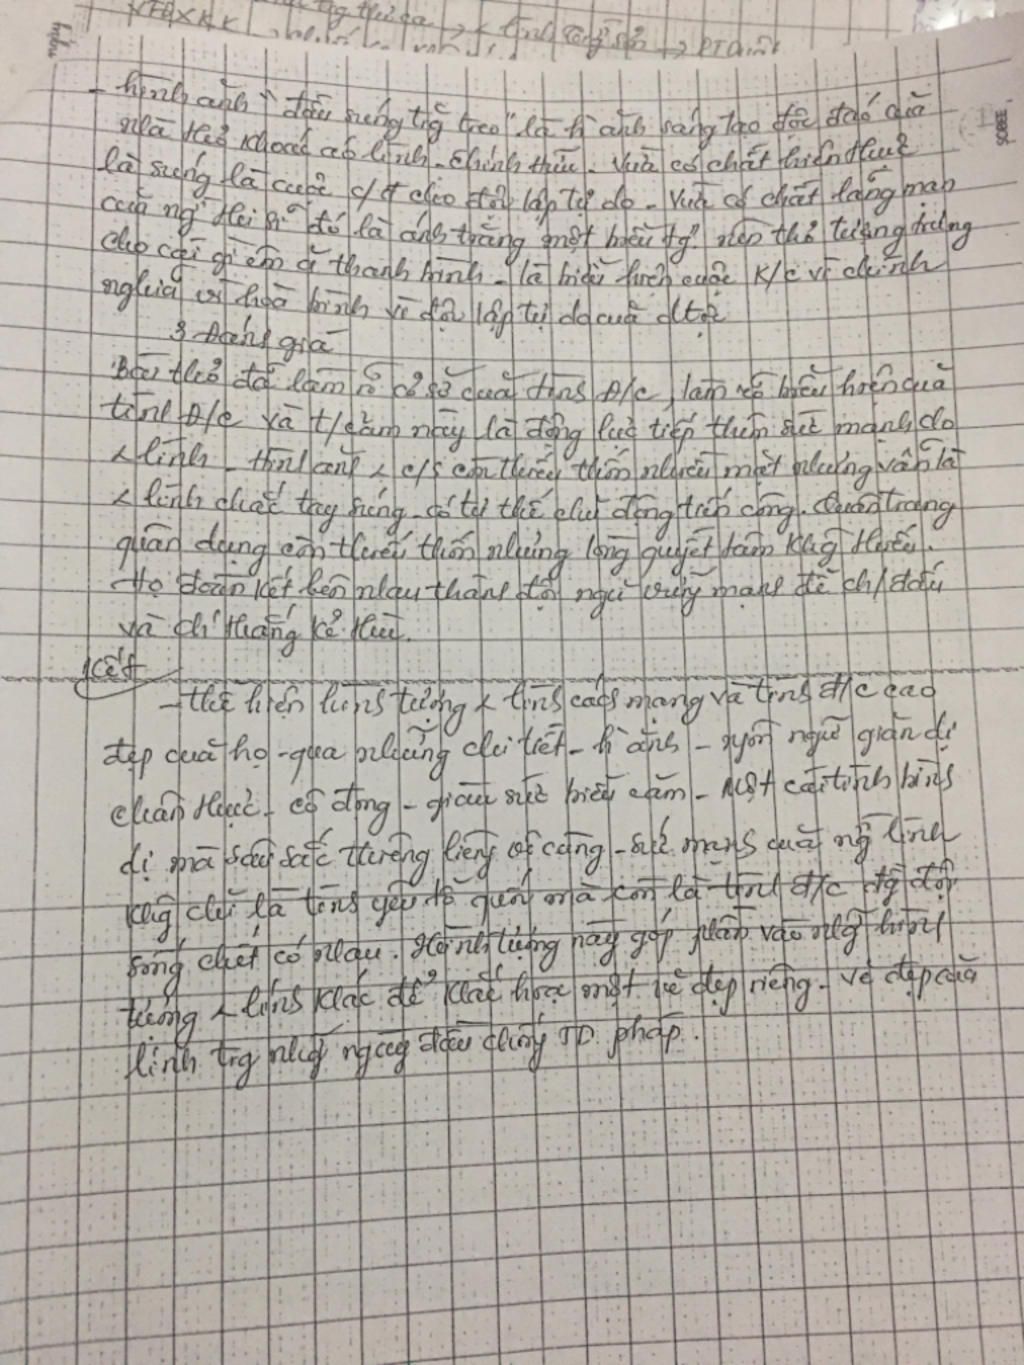 trg thi ca → < tình đồng →
- hình ảnh "đầu súng trg treo" là h ảnh sáng tạo độc đáo của
nhà thơ khoác áo lính - Chính Hữu. Vừa có chất hiện thực
là súng là cuộc c/đ cho độc lập tự do - Vừa có chất lãng mạn
của ng' thi sĩ đó là ánh trăng một biểu tg' nên thơ tượng trưng
cho cái gì êm ả thanh bình - là biểu hiện cuộc k/c vì chính
nghĩa vì hoà bình vì độc lập tự do của dtộc
3 Đánh giá
Bài thơ đã làm rõ cơ sở của tình đ/c, làm rõ biểu hiện của
tình đ/c và t/cảm này là động lực tiếp thêm sức mạnh cho
< lính - hình ảnh < c/s còn thiếu thốn nhiều mặt nhưng vẫn là
< lính chắc tay súng - có tư thế chủ động tiến công. Quân trang
quân dụng còn thiếu thốn nhưng lòng quyết tâm khg thiếu.
Họ đoàn kết bên nhau thành đội ngũ vững mạnh để ch/đấu
và ch' thắng kẻ thù.
Kết
- thể hiện hình tượng < lính cách mạng và tình đ/c cao
đẹp của họ - qua những chi tiết - h ảnh - ngôn ngữ giản dị
chân thực - cô đọng - giàu sức biểu cảm - Một cái tình bình
dị mà sâu sắc thiêng liêng vô cùng - sức mạnh của ng' lính
khg chỉ là tình yêu tổ quốc mà còn là tình đ/c đg đội
sống chết có nhau. Hình tượng này góp phần vào nhg hình
tượng < lính khác để khắc họa một vẻ đẹp riêng - vẻ đẹp của
lính trg nhg ngày đầu chống TD pháp.